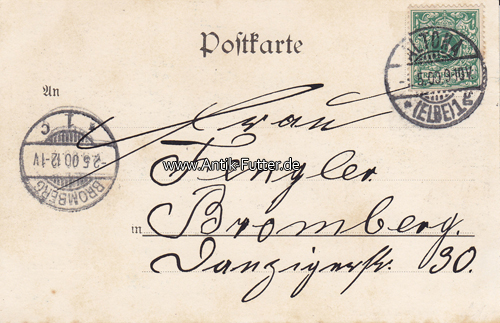 Postkarte
ALTONA
5.00.9-10V.
* (ELBE) 1
An
Frau
BROMBERG
-2.6.00.12-1V
www.Antik-Futter.de
Tengler
in Bromberg.
Danzigerstr. 30.